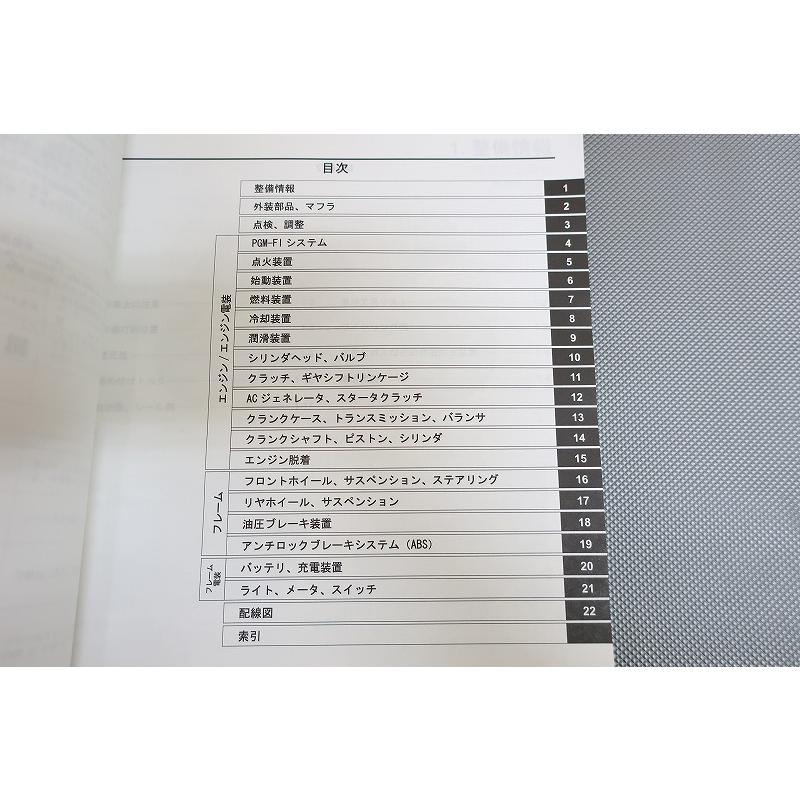 目次
整備情報 1
外装部品、マフラ 2
点検、調整 3
エンジン/エンジン電装
PGM-FI システム 4
点火装置 5
始動装置 6
燃料装置 7
冷却装置 8
潤滑装置 9
シリンダヘッド、バルブ 10
クラッチ、ギヤシフトリンケージ 11
AC ジェネレータ、スタータクラッチ 12
クランクケース、トランスミッション、バランサ 13
クランクシャフト、ピストン、シリンダ 14
エンジン脱着 15
フレーム
フロントホイール、サスペンション、ステアリング 16
リヤホイール、サスペンション 17
油圧ブレーキ装置 18
アンチロックブレーキシステム (ABS) 19
フレーム
電装
バッテリ、充電装置 20
ライト、メータ、スイッチ 21
配線図 22
索引